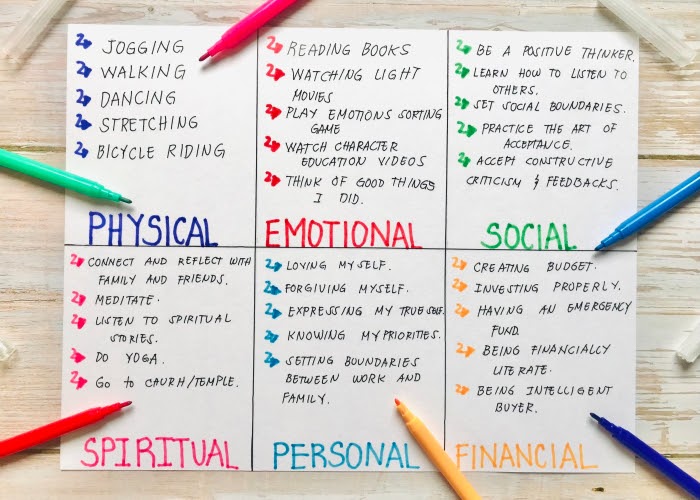 JOGGING
WALKING
DANCING
STRETCHING
BICYCLE RIDING
PHYSICAL
READING BOOKS
WATCHING LIGHT
MOVIES
PLAY EMOTIONS SORTING
GAME
WATCH CHARACTER
EDUCATION VIDEOS
THINK OF GOOD THINGS
I DID.
EMOTIONAL
BE A POSITIVE THINKER.
LEARN HOW TO LISTEN TO
OTHERS.
SET SOCIAL BOUNDARIES.
PRACTICE THE ART OF
ACCEPTANCE.
ACCEPT CONSTRUCTIVE
CRITICISM & FEEDBACKS.
SOCIAL
CONNECT AND REFLECT WITH
FAMILY AND FRIENDS.
MEDITATE.
LISTEN TO SPIRITUAL
STORIES.
DO YOGA.
GO TO CAURH/TEMPLE.
SPIRITUAL
LOVING MYSELF.
FORGIVING MYSELF.
EXPRESSING MY TRUE SELF.
KNOWING MY PRIORITIES.
SETTING BOUNDARIES
BETWEEN WORK AND
FAMILY.
PERSONAL
CREATING BUDGET.
INVESTING PROPERLY.
HAVING AN EMERGENCY
FUND.
BEING FINANCIALLY
LITERATE.
BEING INTELLIGENT
BUYER.
FINANCIAL